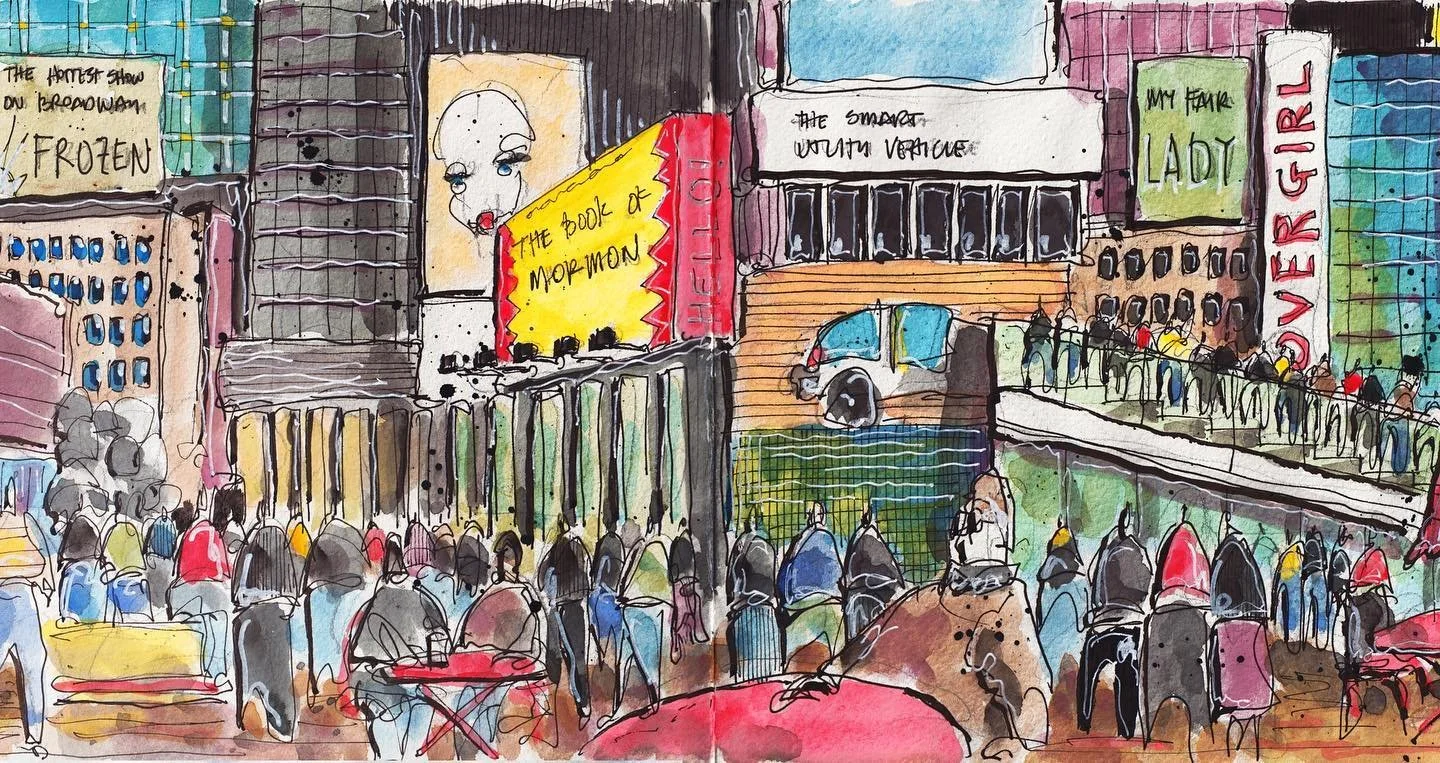 THE HOTTEST SHOW
ON BROADWAY
FROZEN
THE BOOK OF
MORMON
HELLO!
THE SMART
UTILITY VEHICLE
MY FAIR
LADY
OVERGIRL